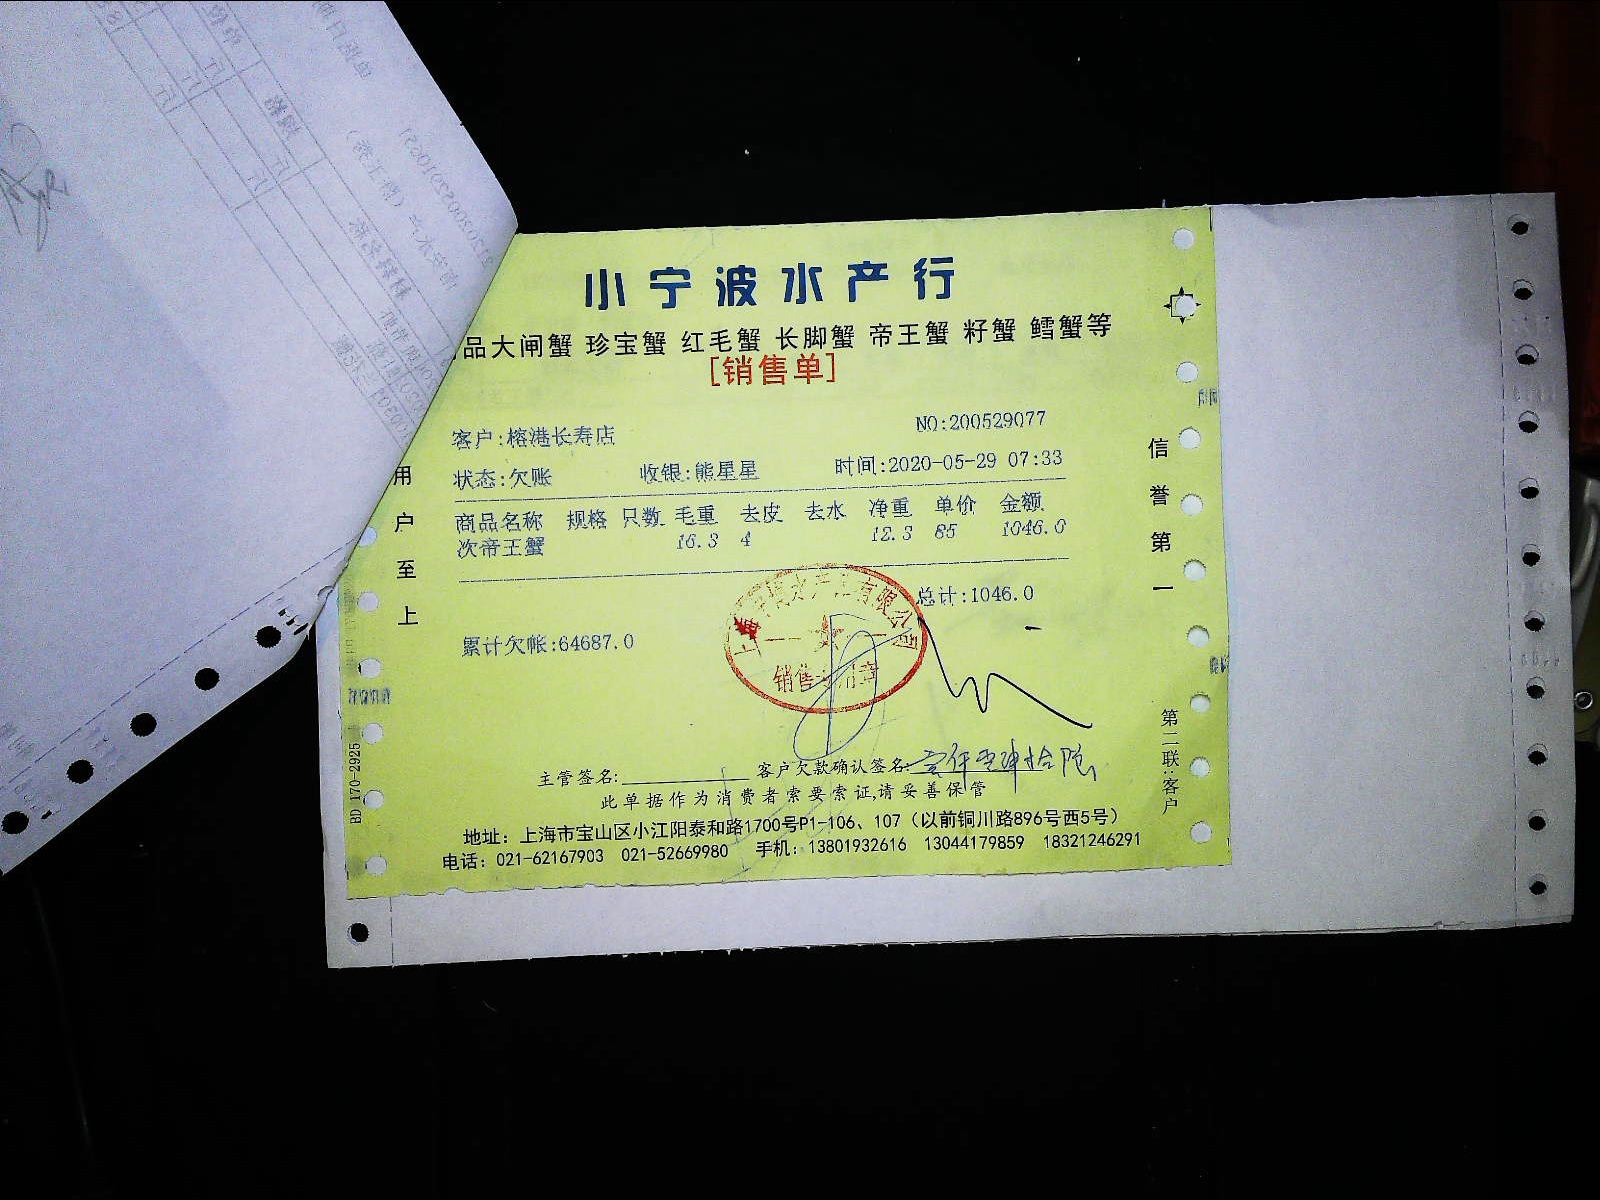 小宁波水产行
品大闸蟹 珍宝蟹 红毛蟹 长脚蟹 帝王蟹 籽蟹 鳕蟹等
[销售单]
NO:200529077
客户:榕港长寿店
状态:欠账 收银:熊星星 时间:2020-05-29 07:33
商品名称 规格 只数 毛重 去皮 去水 净重 单价 金额
次帝王蟹 16.3 4 12.3 85 1046.0
总计:1046.0
累计欠帐:64687.0
销售专用章
主管签名: 客户欠款确认签名:
此单据作为消费者索要索证,请妥善保管
地址：上海市宝山区小江阳泰和路1700号P1-106、107（以前铜川路896号西5号）
电话：021-62167903 021-52669980 手机：13801932616 13044179859 18321246291
用户至上
信誉第一
第二联:客户
BD 170-2925